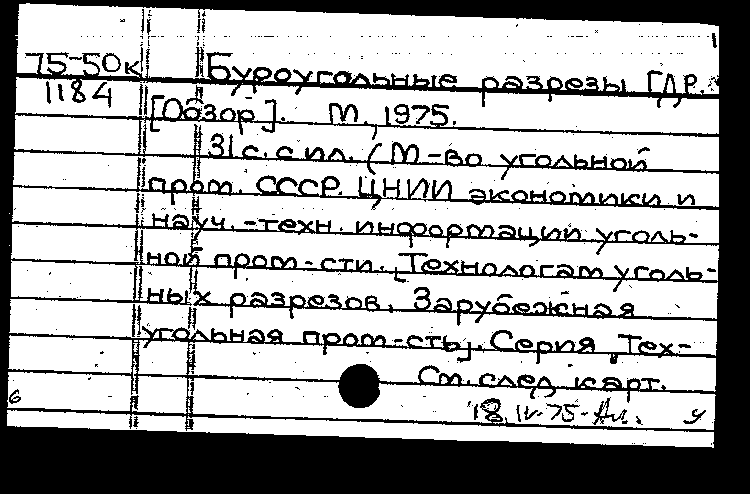 1
75-50к Буроугольные разрезы ГДР.
1184 [Обзор]. М., 1975.
31 с. с ил. (М-во угольной
пром. СССР. ЦНИИ экономики и
науч.-техн. информации уголь-
ной пром-сти. [Технологам уголь-
ных разрезов. Зарубежная
угольная пром-сть]. Серия "Тех-
См. след. карт.
6
18.IV-75-Ал. У